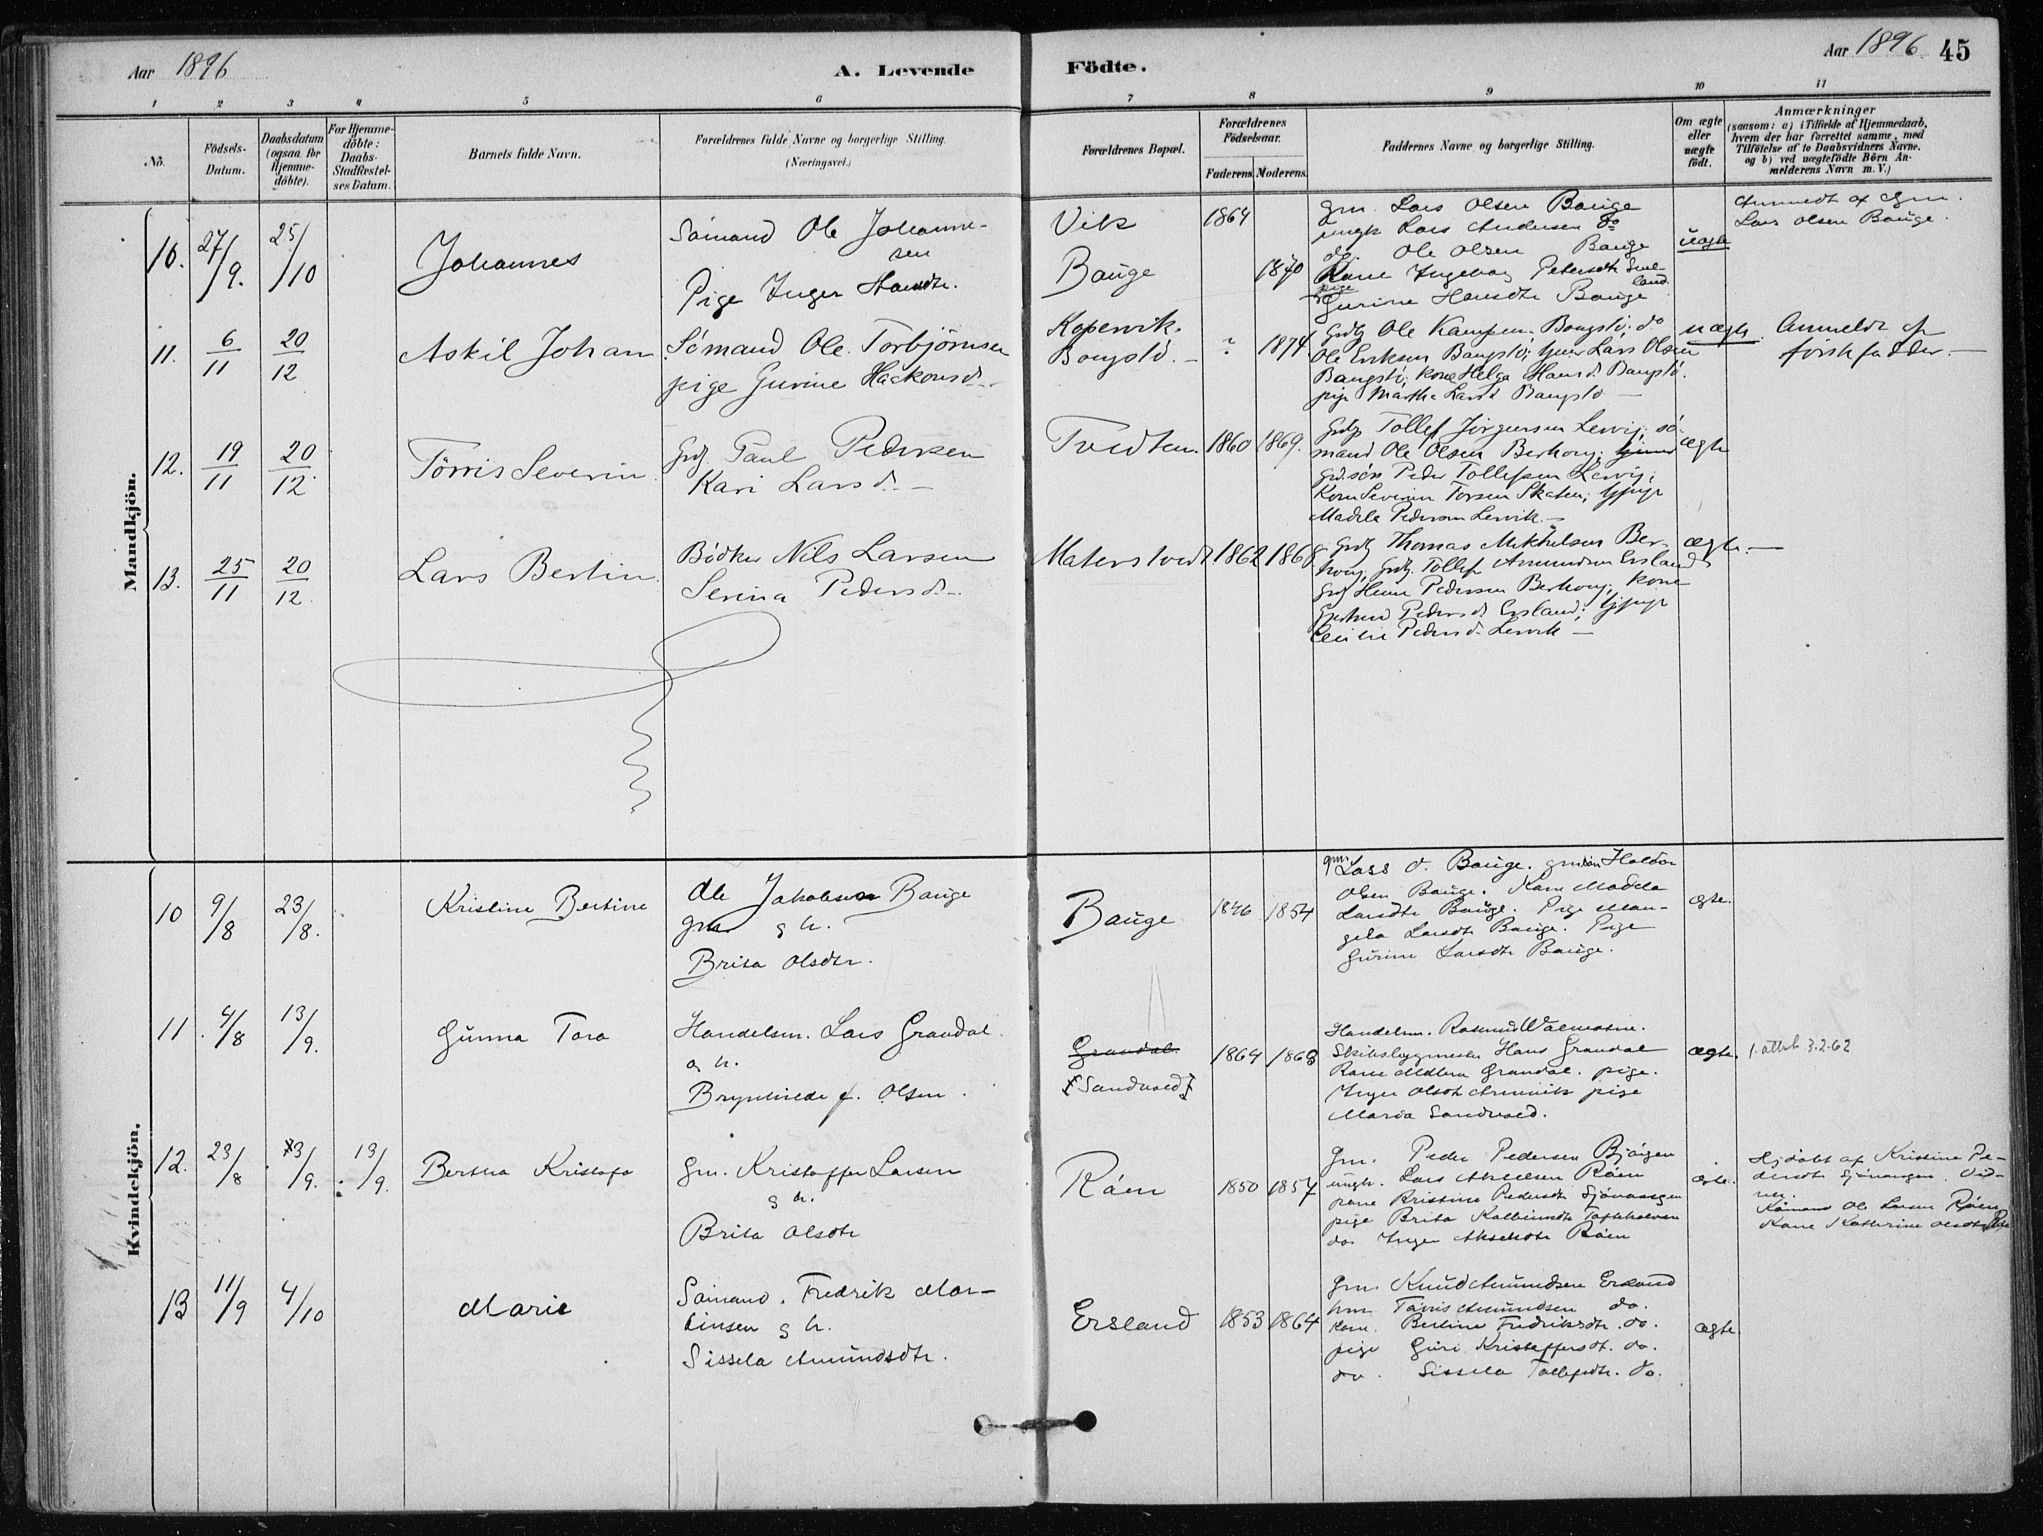 Aar 1896
A. Levende Födte.
Aar 1896 45
1 2 3 4 5 6 7 8 9 10 11
No.
Födsels-Datum.
Daabsdatum (ogsaa for Hjemme-döbte).
For Hjemme-döbte: Daabs-Stadfæstel-ses Datum.
Barnets fulde Navn.
Forældrenes fulde Navne og borgerlige Stilling.
(Næringsvei.)
Forældrenes Bopæl.
Forældrenes Födselsaar.
Faderens. Moderens.
Faddernes Navne og borgerlige Stilling.
Om ægte eller uægte födt.
Anmærkninger
(saasom: a) i Tilfælde af Hjemmedaab, hvem der har forrettet samme, med Tilföielse af to Daabsvidners Navne. og b) ved uægtefödte Börn Anmelderens Navn m. V.)
Mandkjön.
10. 27/9. 25/10 Johannes
Sömand Ole Johanne-
sen
Pige Inger Hansdtr.
Vik 1864
Bauge 1870
gm. Lars Olsen Bauge
ungk Lars Andersen do
do. Ole Olsen Bauge
Kone Ingeborg Petersdtr
pige Gurine Hansdtr Bauge
uægte
Anmeldt af Gm.
Lars Olsen Bauge.
11. 6/11 20/12 Askil Johan
Sömand Ole Torbjörnsen
pige Gurine Hackonsd.
Kopervik.
Bougstö. ? 1874
Grdb Ole Kampen Bougstö; do
Ole Eriksen Baugstö; Lars Olsen
Baugstö; kone Helga Hansd. Baugstö.
pige Martha Larsd Baugstö
uægte.
Anmeldt af
förste fadder.
12. 19/11 20/12. Törris Severin
Grdb Paul Pedersen
Kari Larsd.
Tvedten. 1860 1869.
Grdb Tollef Jörgensen Lervig; sö-
mand Ole Olsen Berhoug;
grd.sön Peder Tollefsen Lervig;
Kone Severine Skaten;
Madela Pedersen Lervik.
ægte
13. 25/11 20/12. Lars Bertin
Bödker Nils Larsen
Serina Pedersd.
Materstvedt 1862 1868
Grdb Thomas Mikkelsen Ber-
houg; Grdb. Tollef Amundsen Ersland
Pedersen Berhoug; Kone
Pedersd. Ersland;
Cecilie Pedersd. Lervik
ægte.
Kvindekjön.
10 9/8 23/8. Kristine Bertine
Ole Jakobsen Bauge
gm. g h.
Brita Olsdtr.
Bauge 1846 1854
gm. Lars O. Bauge. gmsön Haldor
Olsen Bauge. Kone Madela
Larsdtr Bauge. Pige Man-
gela Larsdtr Bauge. Pige
Gurine Larsdtr Bauge.
ægte.
11 4/8 13/9. Gunna Tora
Handelsm. Lars Grandal
g h.
Brynhilde f. Olsen.
Grandal.
[Sandvold] 1864 1868
Handelsm. Rasmus Valmestne.
Skibsbygmester Hans Grandal
Kone Grandal. pige.
Inger Olsdt pige
Maria Sandvold.
ægte. 1. attest 3.2.62
12. 23/8 13/9. 13/9. Bertha Kristofa
Gm. Kristoffer Larsen
g h.
Brita Olsdtr
Röen 1850 1857
gm. Peder Pedersen Bjöigen
ungk. Lars Akselsen Röen
kone Kristine Pedersdtr Sjövangen
pige Brita Kolbeinsdtr
do. Inger Akseldtr Röen
ægte.
Hj.döbt af Kristine Pe-
dersdt Sjövangen. Vid-
ner.
Sömand Ole Larsen Röen
Kone Katherine Olsdtr
13 11/9 4/10 Marie
Sömand. Fredrik Mar-
tinsen g h.
Sissela Amundsdtr.
Ersland 1853 1864
Gm. Knud Amundsen Ersland
hm Törris Amundsen do.
kone. Bertine Fredriksdtr. do.
pige Guri Kristoffersdt. do.
do. Sissela Tollefsdtr. do.
ægte.